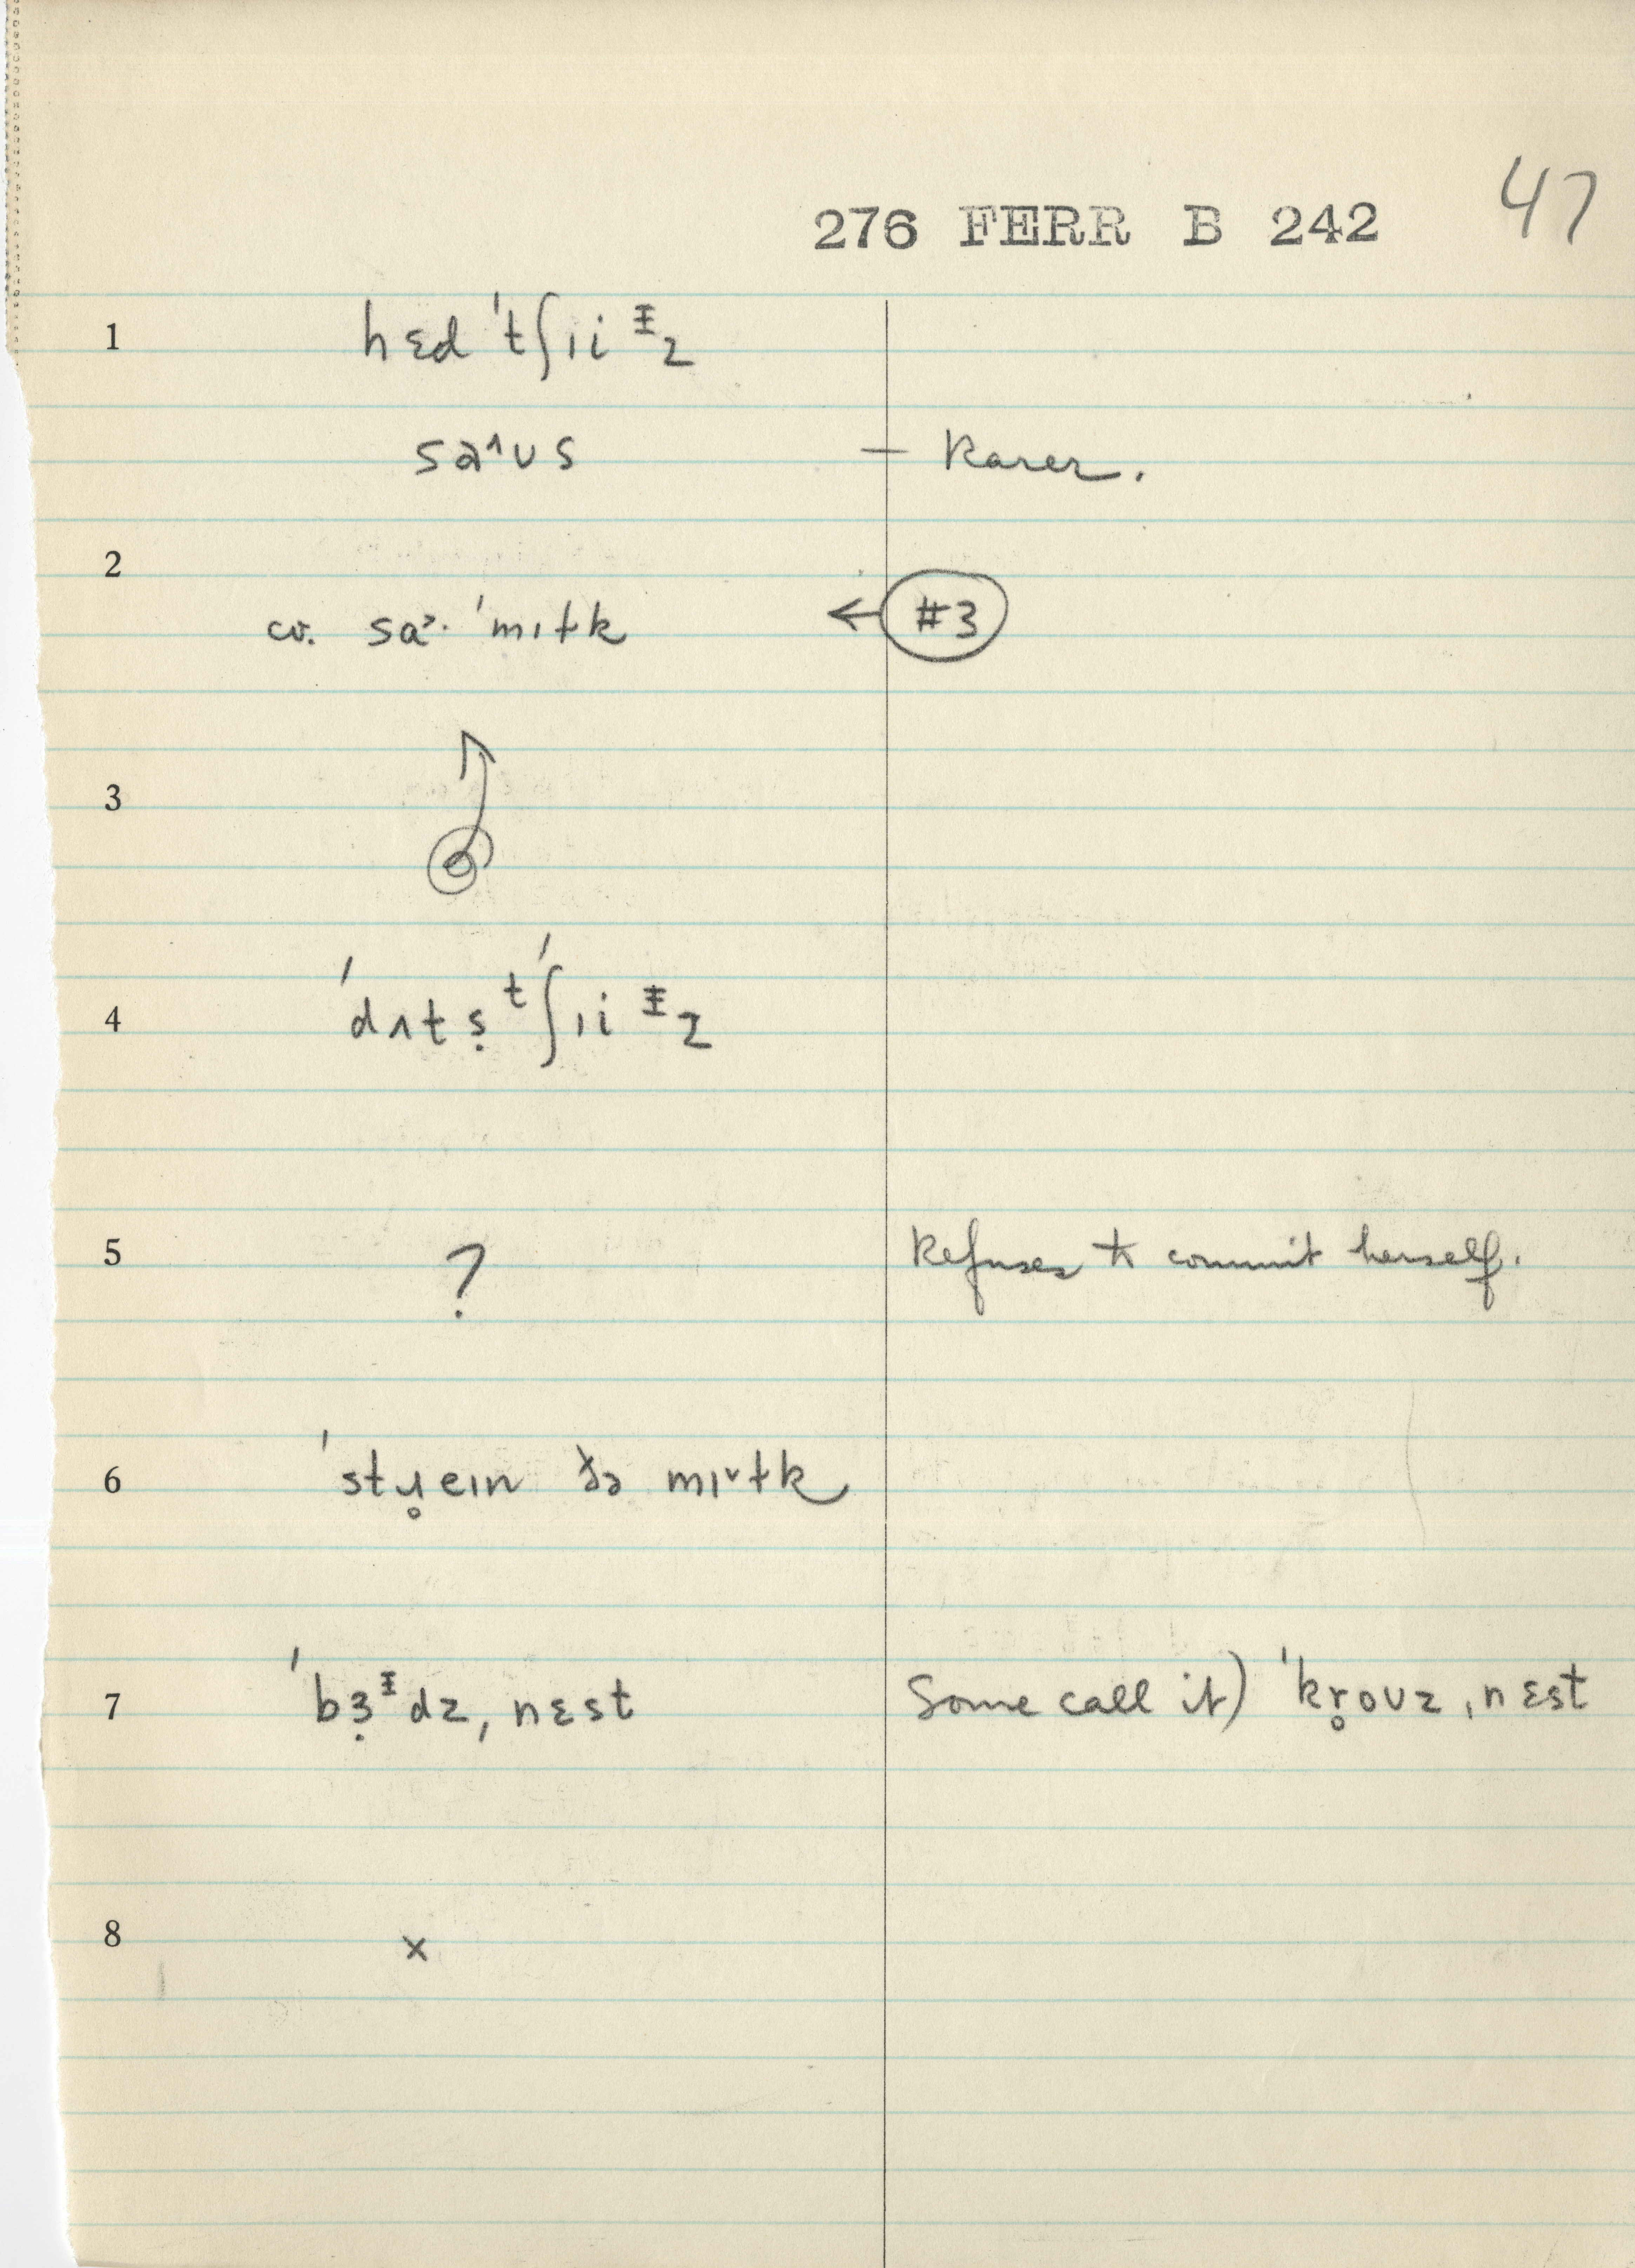 276 FERR B 242 47
1 hɛd ˈtʃɪi ᵻz
saˆʊs — Rarer.
2
cv. saᵊ· ˈmɪɫk ← #3
3
4 ˈdʌtṣ ᵗˈʃɪi ᵻz
5 ? Refuses to commit herself.
6 ˈstɹ̥eɪn ðə mɪˇɫk
7 ˈbɜ̣ᵻdz, nɛst Some call it) ˈkr̥oʊz, nɛst
8 x